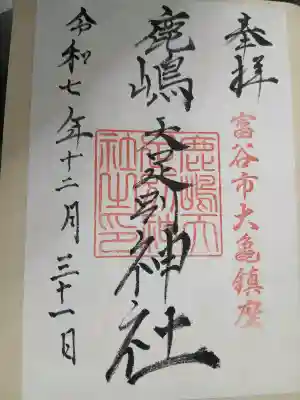 奉拝
富谷市大亀鎮座
鹿嶋天足別神社
鹿嶋天
足別神
社之印
令和七年十二月三十一日